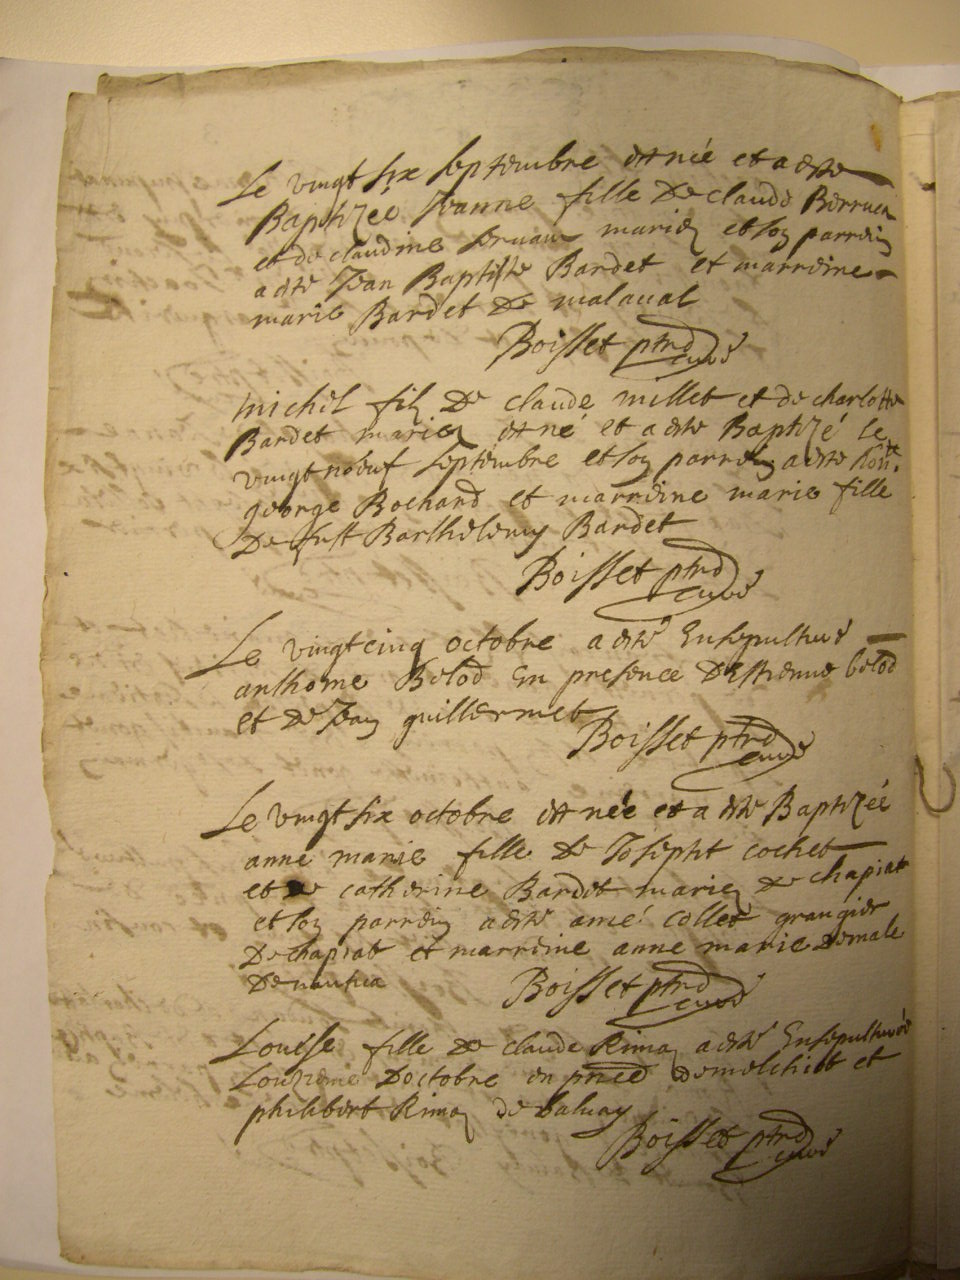 Le vingt six septembre est née et a este
Baptizee Jeanne fille de claude
et de claudine mariez et son parrein
a esté Jean Baptiste Bardet et marreine
marie Bardet de malaval
Boisset ptre curé
michel filz de claude millet et de charlotte
Bardet mariez est né et a esté Baptizé le
vingt noeuf septembre et son parrein a esté hon.te
george Bochard et marreine marie fille
de fust Barthelemy Bardet
Boisset ptre curé
Le vingt cinq octobre a esté Ensepulturé
anthome Belod En presence D'Estienne belod
et de Jean guillermet
Boisset ptre curé
Le vingt six octobre est née et a esté Baptizée
anne marie fille de Josepht cochet
et de catherine Bardet mariez de chapiat
et son parrein a esté amé collet grangier
de chapiat et marreine anne marie
Boisset ptre curé
Louise fille de claude Rimoz a esté Ensepulturée
L'onzieme D'octobre en pnce de melchiot et
philibert Rimoz
Boisset ptre curé